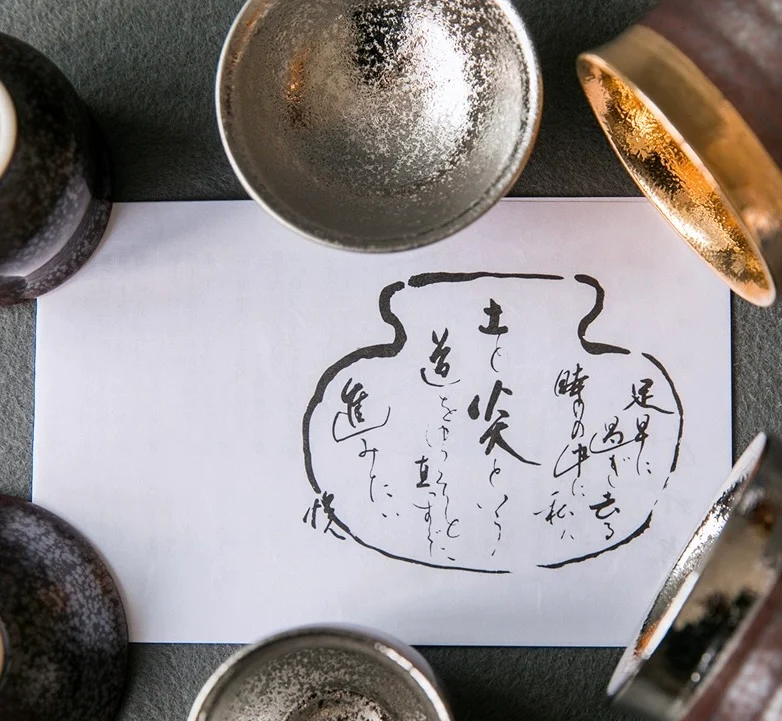 足早に
過ぎ去る
時の中に私は
土と炎という
道をゆっくりと
真っすぐに
進みたい
悦